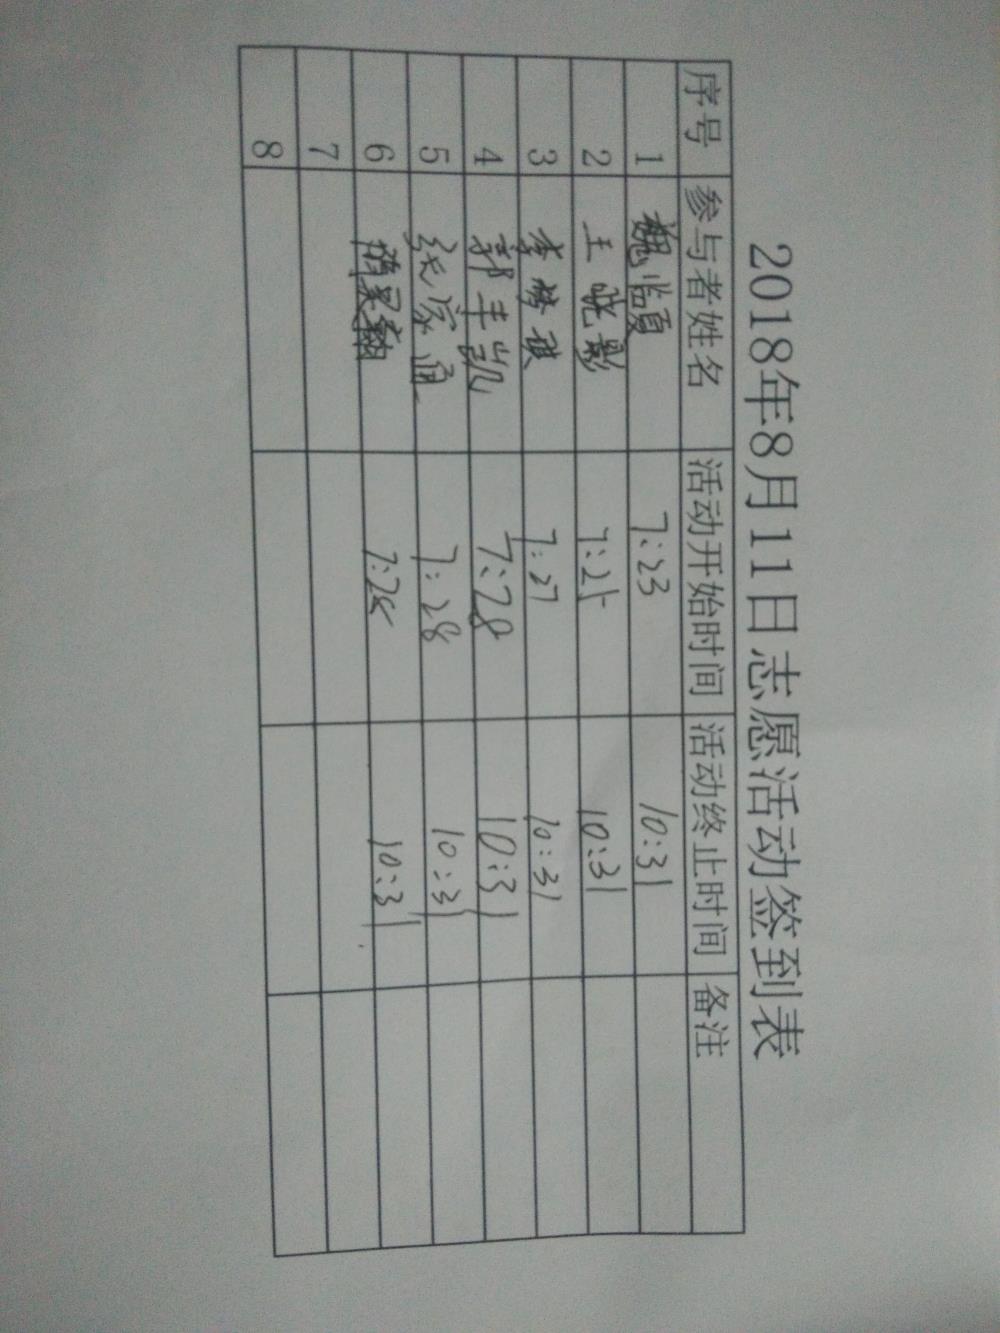 2018年8月11日志愿活动签到表
序号 参与者姓名 活动开始时间 活动终止时间 备注
1 魏临夏 7:23 10:31
2 王晓影 7:25 10:31
3 李梦琪 7:27 10:31
4 郭丰凯 7:28 10:31
5 张家通 7:28 10:31
6 10:31
7
8